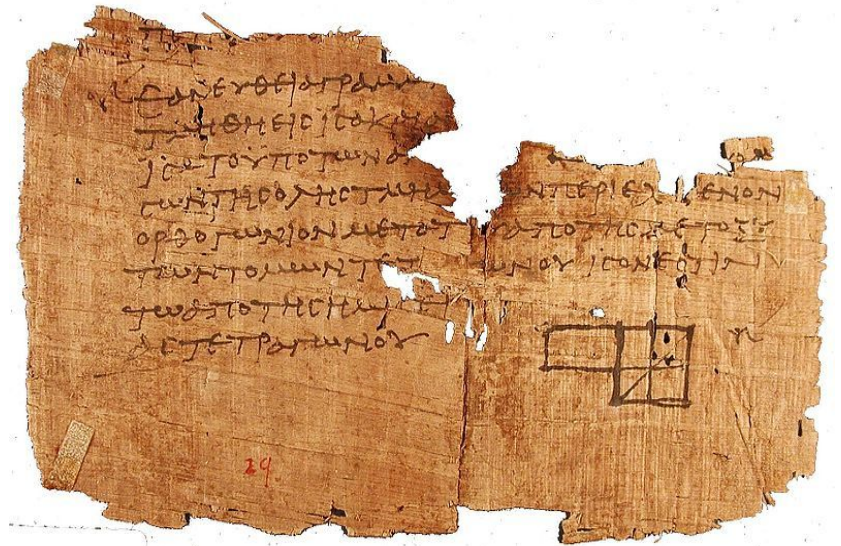 ΕΑΝΕΥΘΕΙΑΓΡΑΜ
ΤΜΗΘΗΕΙϹΙϹΑΚΑΙΑΝ
ΙϹΑΤΟΥΠΟΤΩΝΑ
ΤΩΝΤΗϹΟΛΗϹΤΜΗΜ ΩΝΠΕΡΙΕΧ ΜΕΝΟΝ
ΟΡΘΟΓΩΝΙΟΝΜΕΤΑΤ ΥΑΠΟΤΗϹΜΕΤΟΞΥ
ΤΩΝΤΟΜΩΝΤΕΤ ΩΝΟΥΙϹΟΝΕϹΤΙΝ
ΤΩΑΠΟΤΗϹΗΜΙϹΕΙ
ΑϹΤΕΤΡΑΓΩΝΟΥ
29